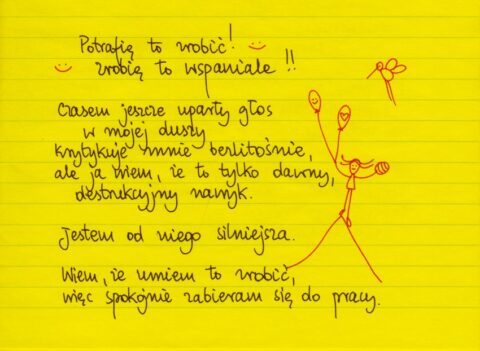 Potrafię to zrobić!
zrobię to wspaniale!!
Czasem jeszcze uparty głos
w mojej duszy
krytykuje mnie bezlitośnie,
ale ja wiem, że to tylko dawny,
destrukcyjny nawyk.
Jestem od niego silniejsza.
Wiem, że umiem to zrobić,
więc spokojnie zabieram się do pracy.